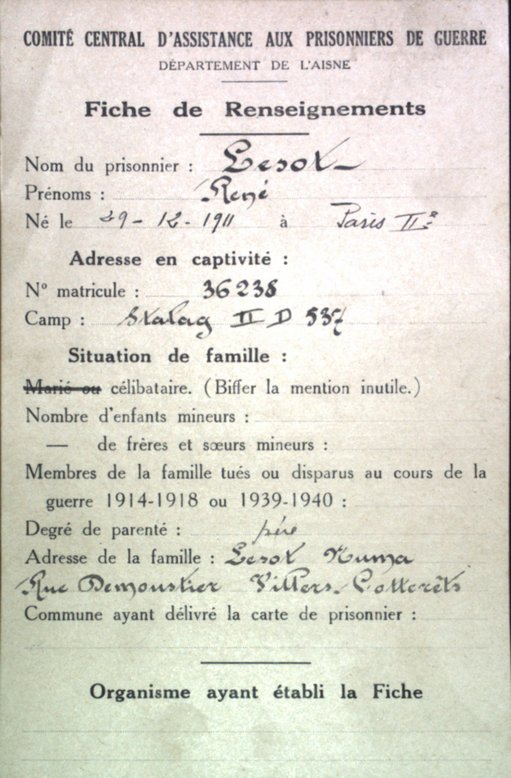 COMITÉ CENTRAL D'ASSISTANCE AUX PRISONNIERS DE GUERRE
DÉPARTEMENT DE L'AISNE
Fiche de Renseignements
Nom du prisonnier : Lesot
Prénoms : René
Né le 29-12-1911 à Paris II e
Adresse en captivité :
N° matricule : 36238
Camp : Stalag II D 337
Situation de famille :
Marié ou célibataire. (Biffer la mention inutile.)
Nombre d'enfants mineurs :
— de frères et sœurs mineurs :
Membres de la famille tués ou disparus au cours de la
guerre 1914-1918 ou 1939-1940 :
Degré de parenté : père
Adresse de la famille : Lesot Numa
Rue Demoustier Villers-Cotterêts
Commune ayant délivré la carte de prisonnier :
Organisme ayant établi la Fiche